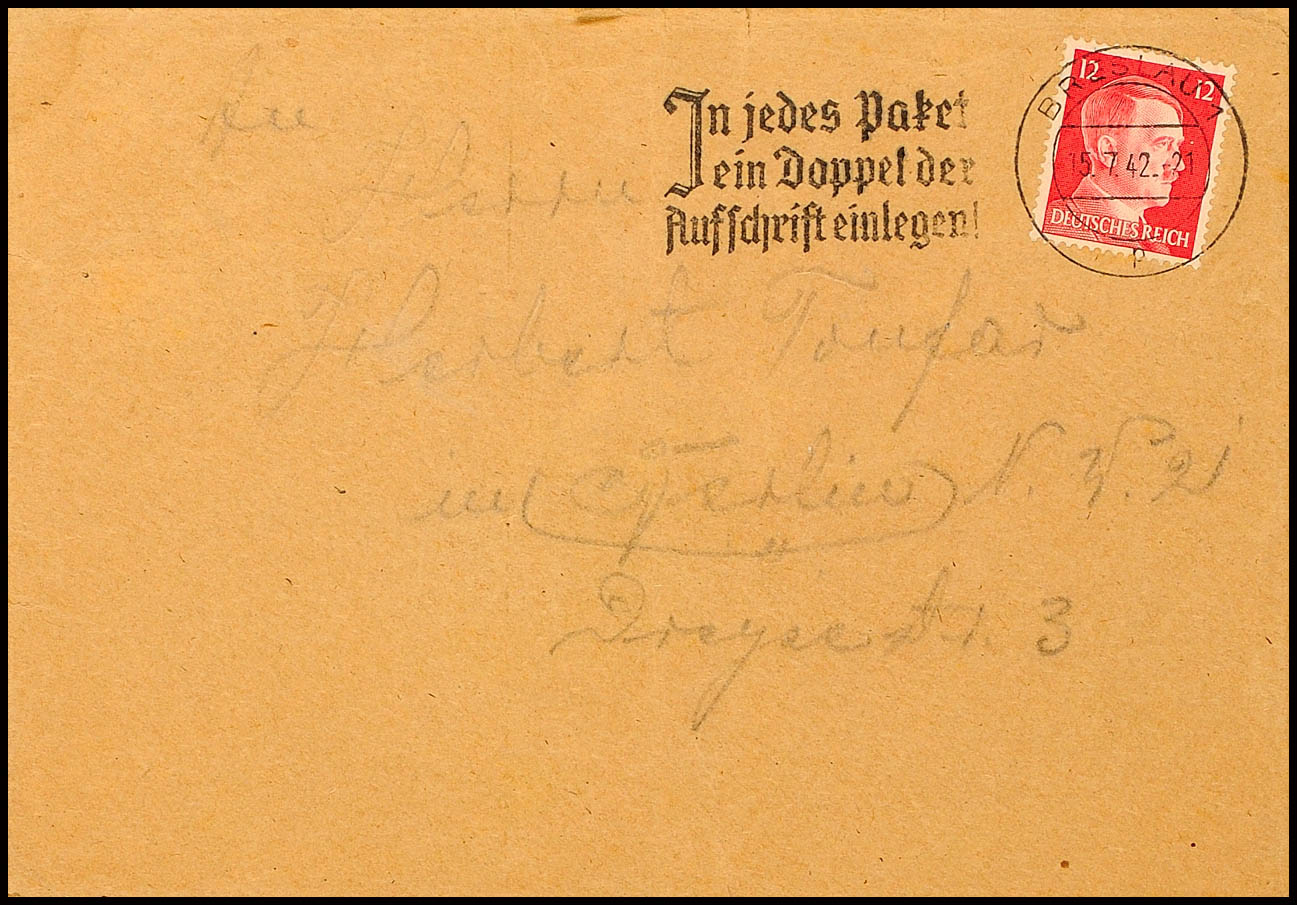 An
Herrn
In jedes Paket
ein Doppel der
Aufschrift einlegen!
BRESLAU 1
15.7.42.-21
p
12 12
DEUTSCHES REICH
Herbert
in Berlin N.W. 21
Str. 3